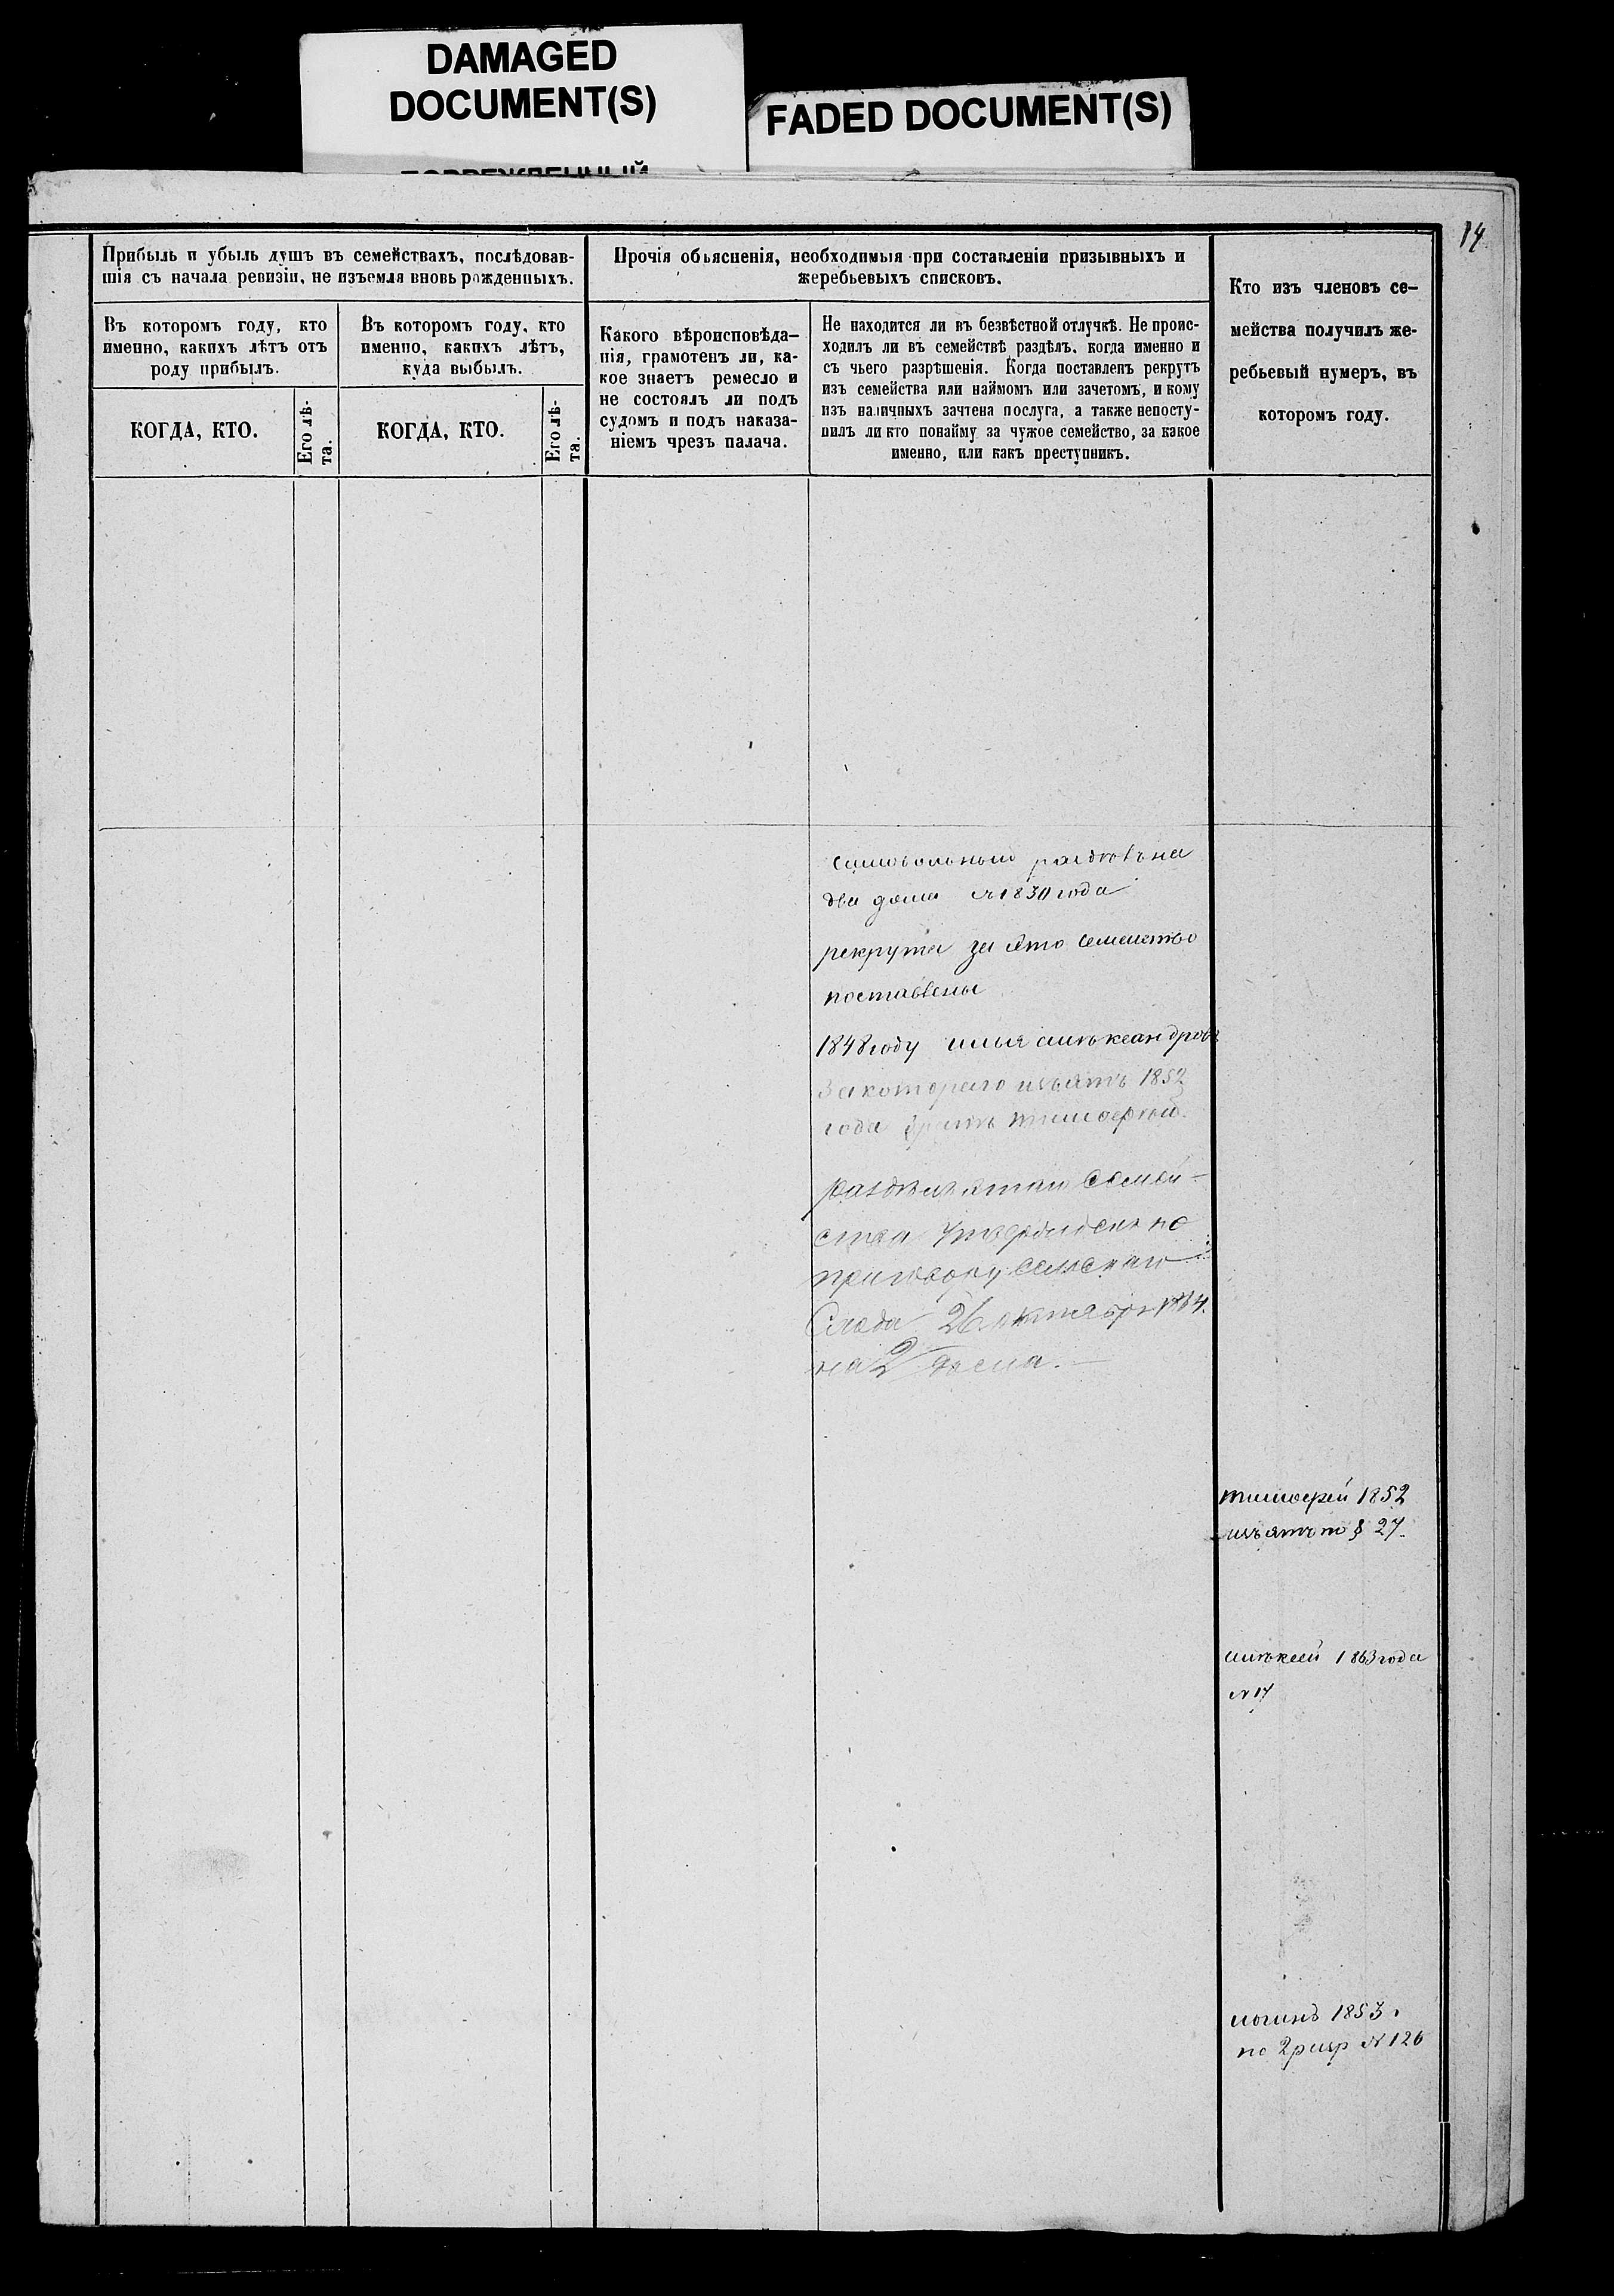 DAMAGED
DOCUMENT(S)
FADED DOCUMENT(S)
14
Прибыль и убыль душъ въ семействахъ, послѣдовав-
шія съ начала ревизіи, не изъемля вновь рожденныхъ.
Въ которомъ году, кто
именно, какихъ лѣтъ отъ
роду прибылъ.
КОГДА, КТО.
Его лѣ-
та.
Въ которомъ году, кто
именно, какихъ лѣтъ,
куда выбылъ.
КОГДА, КТО.
Его лѣ-
та.
Прочія обьясненія, необходимыя при составленіи призывныхъ и
жеребьевыхъ списковъ.
Какого вѣроисповѣда-
нія, грамотенъ ли, ка-
кое знаетъ ремесло и
не состоялъ ли подъ
судомъ и подъ наказа-
ніемъ чрезъ палача.
Не находится ли въ безвѣстной отлучкѣ. Не проис-
ходилъ ли въ семействѣ раздѣлъ, когда именно и
съ чьего разрѣшенія. Когда поставленъ рекрутъ
изъ семейства или наймомъ или зачетомъ, и кому
изъ наличныхъ зачтена послуга, а также непосту-
пилъ ли кто понайму за чужое семейство, за какое
именно, или какъ преступникъ.
Кто изъ членовъ се-
мейства получилъ же-
ребьевый нумеръ, въ
которомъ году.
на
два дома 1830 года
рекрута за это семейство
поставлены
1848 году илья александровъ
За котораго изъятъ 1852
года братъ тимофей.
раздѣлъ этаго Семей-
ства Утвержденъ по
приговору Сельскаго
Схода 26 октября 1864.
на 2 дома.
тимофей 1852
изъятъ по § 27.
алексей 1863 года
№ 17
логинъ 1853.
по 2 разр № 126